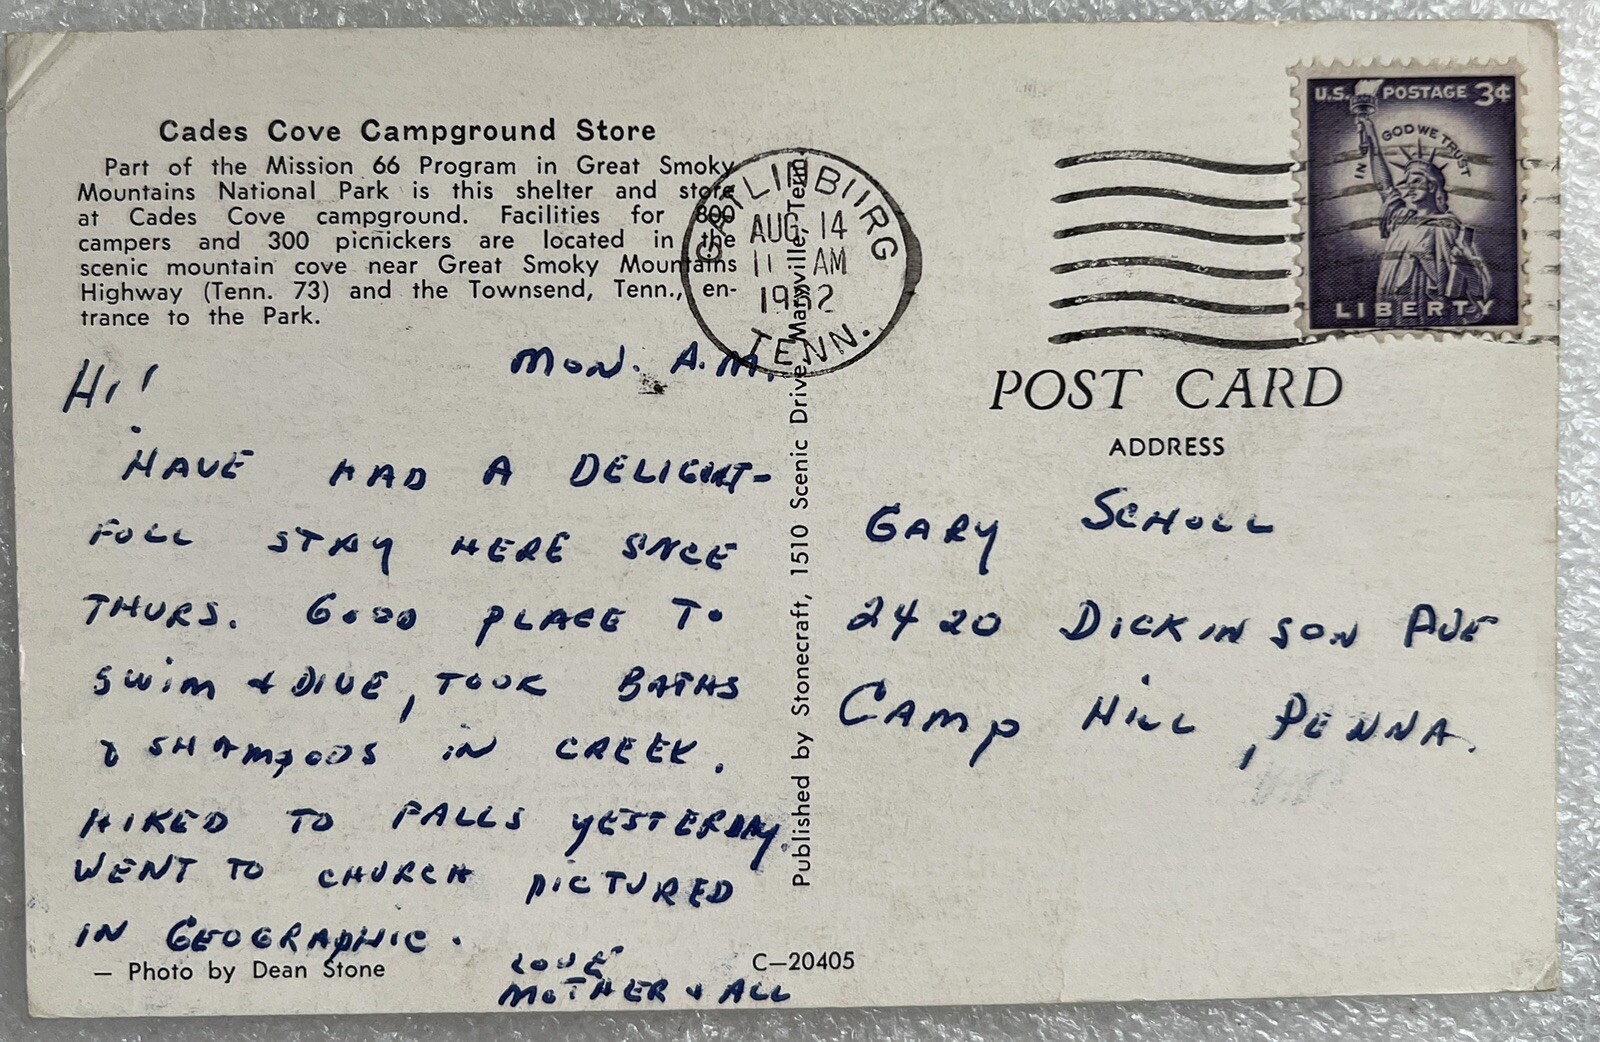 Cades Cove Campground Store
Part of the Mission 66 Program in Great Smoky
Mountains National Park is this shelter and store
at Cades Cove campground. Facilities for 800
campers and 300 picnickers are located in the
scenic mountain cove near Great Smoky Mountains
Highway (Tenn. 73) and the Townsend, Tenn., en-
trance to the Park.
MON. A.M.
HI!
HAVE HAD A DELIGHT-
FULL STAY HERE SINCE
THURS. GOOD PLACE TO
SWIM & DIVE, TOOK BATHS
& SHAMPOOS IN CREEK.
HIKED TO FALLS YESTERDAY.
WENT TO CHURCH PICTURED
IN GEOGRAPHIC.
LOVE
MOTHER & ALL
— Photo by Dean Stone
C—20405
Published by Stonecraft, 1510 Scenic Drive, Maryville, Tenn.
GATLINBURG
AUG 14
11 AM
TENN.
U.S. POSTAGE 3¢
IN GOD WE TRUST
LIBERTY
POST CARD
ADDRESS
GARY SCHOLL
2420 DICKINSON AVE
CAMP HILL, PENNA.